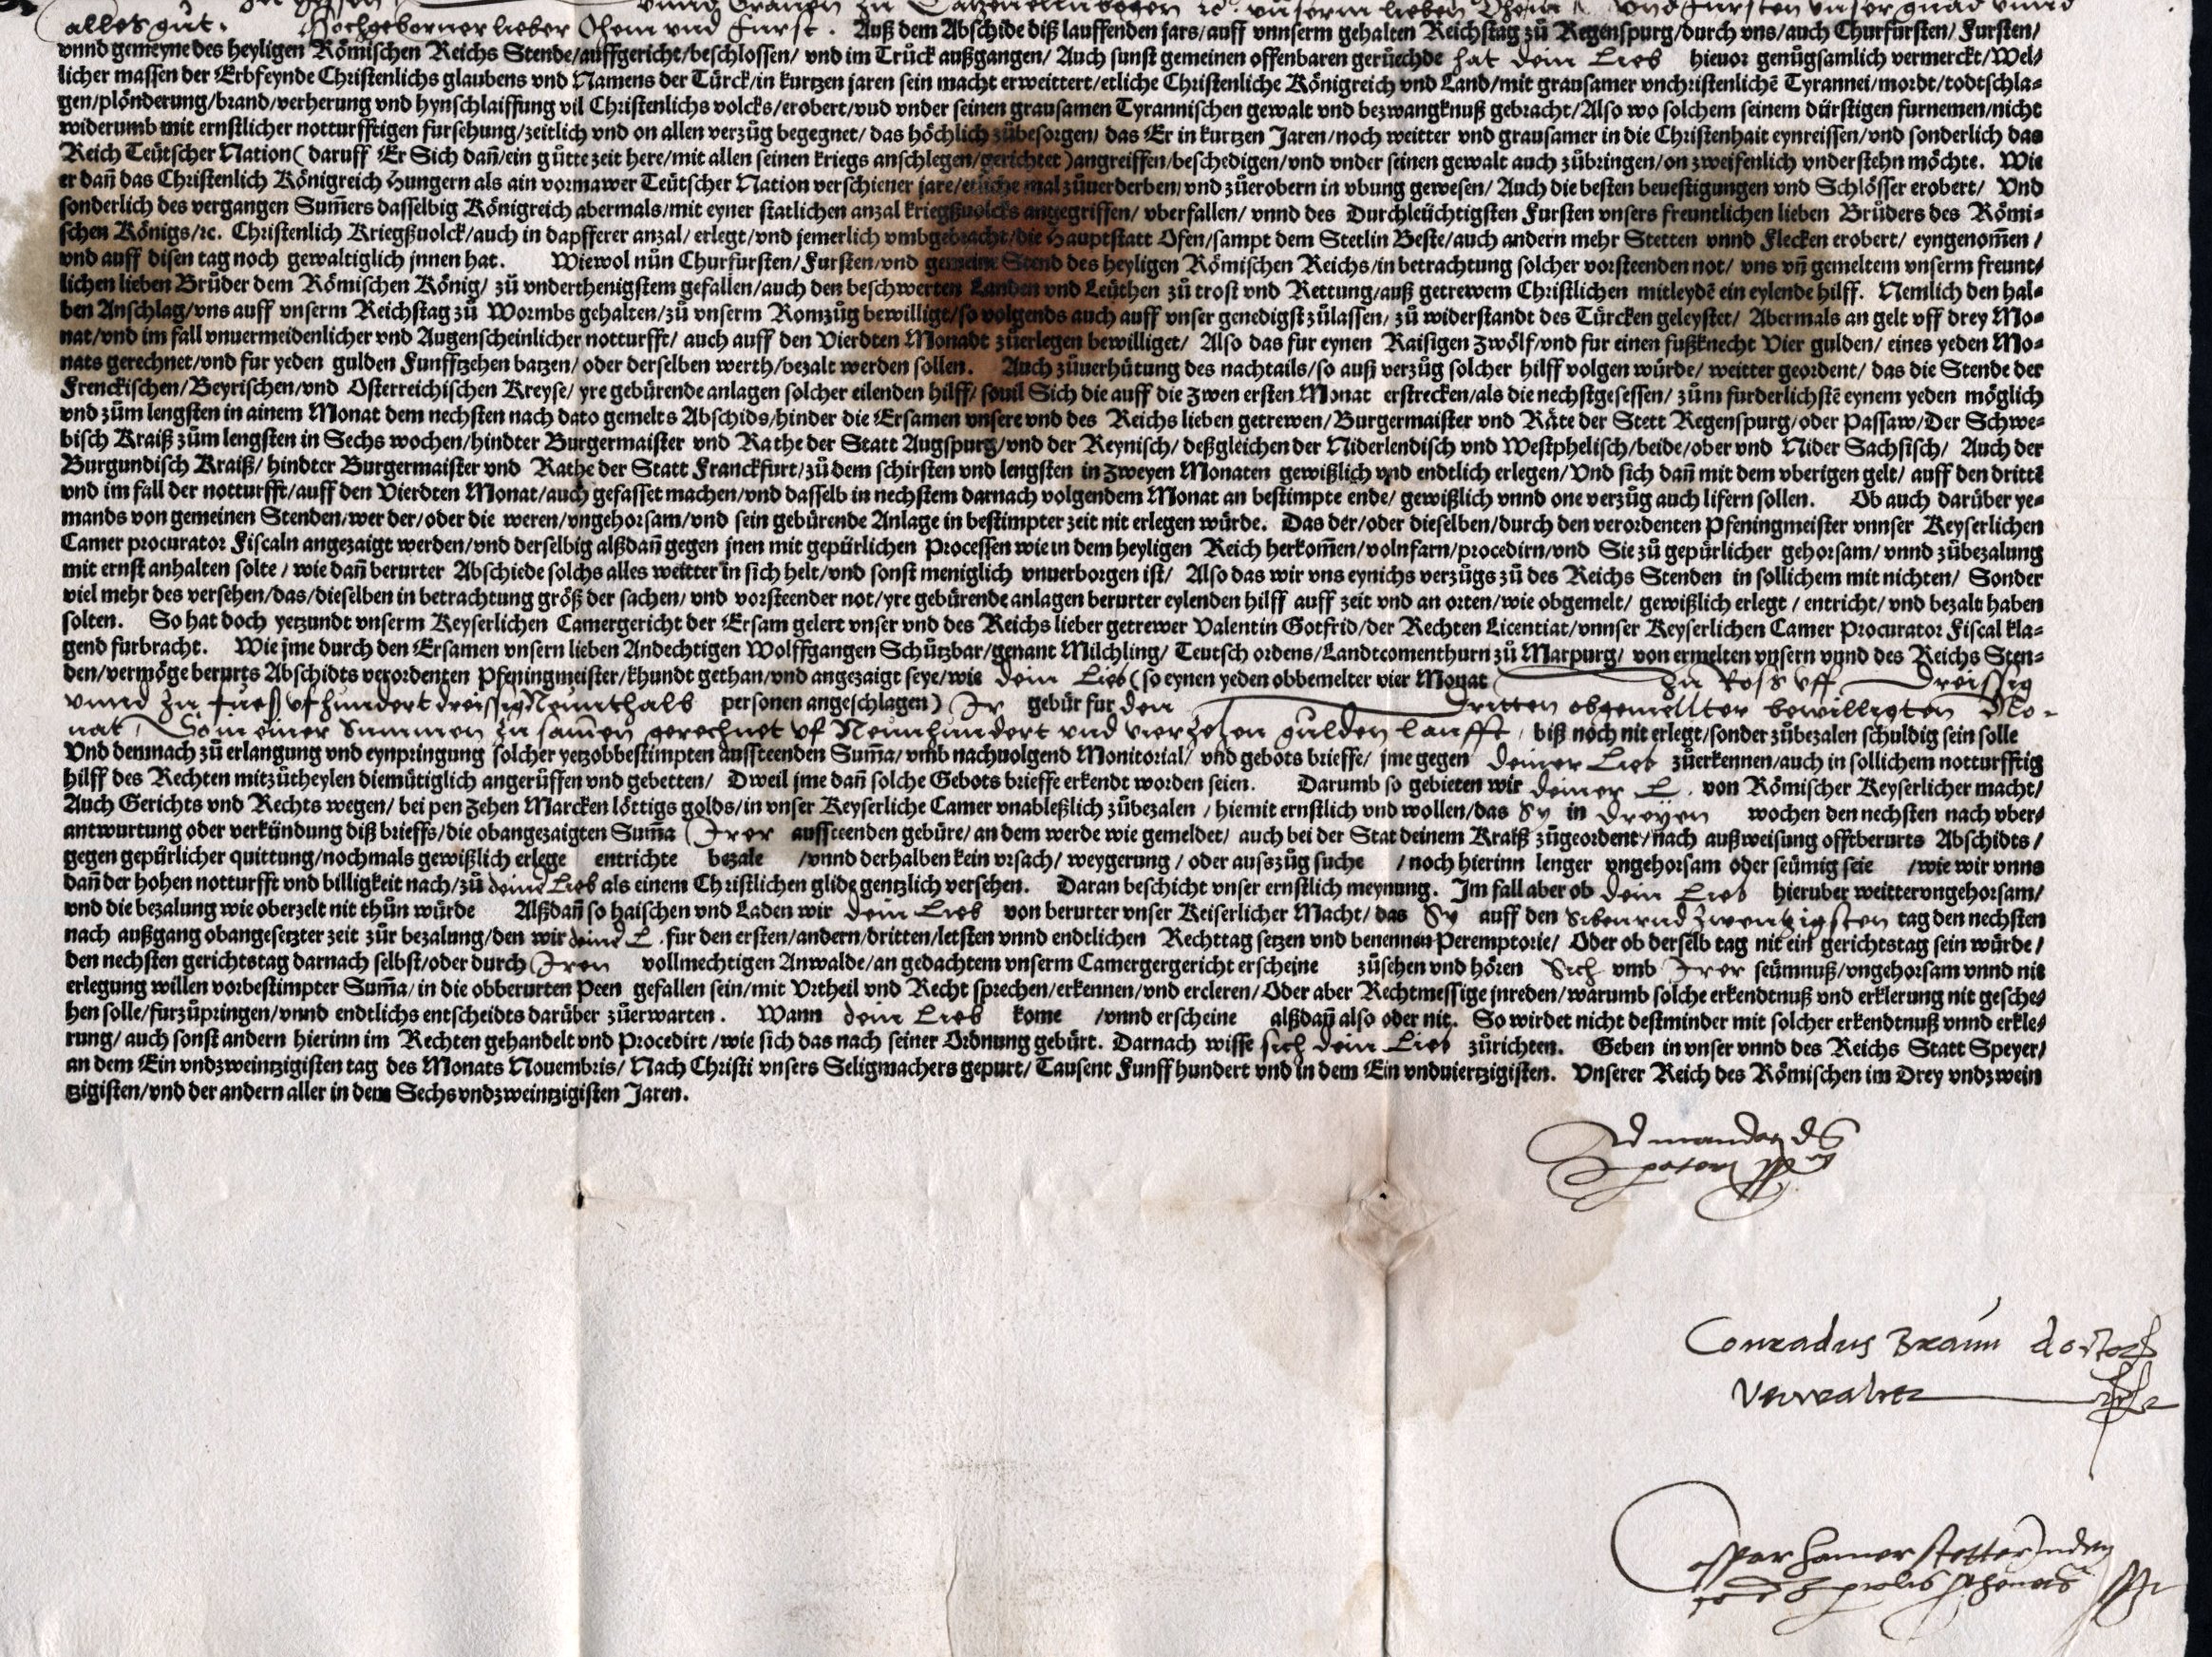 vnnd Grauen zu Catzenellnbogen ꝛc. vnserm lieben Ohem vnd Fursten vnser gnad vnnd
alles gůt. Hochgeborner lieber Ohem vnd Furst. Auß dem Abschide diß lauffenden jars/auff vnnserm gehalten Reichstag zů Regenspurg/durch vns/auch Churfursten/ Fursten/
vnnd gemeyne des heyligen Römischen Reichs Stende/auffgericht/beschlossen/ vnd im Trůck außgangen/ Auch sunst gemeinen offenbaren gerüechde hat dein Lieb hieuor genůgsamlich vermerckt/Wel-
licher massen der Erbfeynde Christenlichs glaubens vnd Namens der Türck/in kurtzen jaren sein macht erweittert/etliche Christenliche Königreich vnd Land/mit grausamer vnchristenlichē Tyrannei/mordt/todtschla-
gen/plönderung/brand/verherung vnd hynschlaiffung vil Christenlichs volcks/erobert/vnd vnder seinen grausamen Tyrannischen gewalt vnd bezwangknuß gebracht/Also wo solchem seinem dürstigen furnemen/nicht
widerumb mit ernstlicher notturfftigen fursehung/zeitlich vnd on allen verzůg begegnet/ das höchlich zůbesorgen/ das Er in kurtzen Jaren/noch weitter vnd grausamer in die Christenhait eynreissen/vnd sonderlich das
Reich Teütscher Nation (daruff Er Sich dañ/ein gůtte zeit here/mit allen seinen kriegs anschlegen/gerichtet) angreiffen/beschedigen/vnd vnder seinen gewalt auch zůbringen/on zweifenlich vnderstehn möchte. Wie
er dañ das Christenlich Königreich Hungern als ain vormawer Teütscher Nation verschiener jare/etliche mal zůuerderben/ vnd zůerobern in vbung gewesen/ Auch die besten beuestigungen vnd Schlösser erobert/ Vnd
sonderlich des vergangen Sum̃ers dasselbig Königreich abermals/mit eyner statlichen anzal kriegßuolcks angegriffen/ vberfallen/ vnnd des Durchleüchtigsten Fursten vnsers freuntlichen lieben Brůders des Römi-
schen Königs/ꝛc. Christenlich Kriegßuolck/auch in dapfferer anzal/ erlegt/vnd jemerlich vmbgebracht/die Hauptstatt Ofen/sampt dem Stetlin Beste/auch andern mehr Stetten vnnd Flecken erobert/ eyngenom̃en /
vnd auff disen tag noch gewaltiglich jnnen hat. Wiewol nůn Churfursten/ Fursten/vnd gemeine Stend des heyligen Römischen Reichs/in betrachtung solcher vorsteenden not/ vns vñ gemeltem vnserm freunt-
lichen lieben Brůder dem Römischen König/ zů vnderthenigstem gefallen/auch den beschwerten Landen vnd Leüthen zů trost vnd Rettung/auß getrewem Christlichen mitleydē ein eylende hilff. Nemlich den hal-
ben Anschlag/vns auff vnserm Reichstag zů Wormbs gehalten/zů vnserm Romzůg bewilligt/so volgends auch auff vnser genedigst zůlassen/ zů widerstandt des Türcken geleystet/ Abermals an gelt vff drey Mo-
nat/vnd im fall vnuermeidenlicher vnd Augenscheinlicher notturfft/ auch auff den Vierdten Monadt zůerlegen bewilliget/ Also das fur eynen Raisigen Zwölf/vnd fur einen fußknecht Vier gulden/ eines yeden Mo-
nats gerechnet/vnd fur yeden gulden Funfftzehen batzen/ oder derselben werth/bezalt werden sollen. Auch zůuerhütung des nachtails/so auß verzůg solcher hilff volgen würde/ weitter geordent/ das die Stende der
Frenckischen/Beyrischen/vnd Osterreichischen Kreyse/ yre gebürende anlagen solcher eilenden hilff/ souil Sich die auff die zwen ersten Monat erstrecken/als die nechstgesessen/ zům furderlichstē eynem yeden möglich
vnd zům lengsten in ainem Monat dem nechsten nach dato gemelts Abschids/hinder die Ersamen vnsere vnd des Reichs lieben getrewen/Burgermaister vnd Räte der Stett Regenspurg/oder Passaw/Der Schwe-
bisch Kraiß zům lengsten in Sechs wochen/hindter Burgermaister vnd Rathe der Statt Augspurg/vnd der Reynisch/ deßgleichen der Niderlendisch vnd Westphelisch/beide/ober vnd Nider Sachsisch/ Auch der
Burgundisch Kraiß/ hindter Burgermaister vnd Rathe der Statt Franckfurt/zů dem schirsten vnd lengsten in zweyen Monaten gewißlich vnd endtlich erlegen/Vnd sich dañ mit dem vberigen gelt/ auff den drittē
vnd im fall der notturfft/auff den Vierdten Monat/auch gefasset machen/vnd dasselb in nechstem darnach volgendem Monat an bestimpte ende/ gewißlich vnnd one verzůg auch lifern sollen. Ob auch darüber ye-
mands von gemeinen Stenden/wer der/oder die weren/vngehorsam/vnd sein gebürende Anlage in bestimpter zeit nit erlegen würde. Das der/oder dieselben/durch den verordenten Pfeningmeister vnnser Keyserlichen
Camer procurator Fiscaln angezaigt werden/vnd derselbig alßdañ gegen jnen mit gepürlichen Processen wie in dem heyligen Reich herkom̃en/volnfarn/procedirn/vnd Sie zů gepürlicher gehorsam/ vnnd zůbezalung
mit ernst anhalten solte/ wie dañ berurter Abschiede solchs alles weitter in sich helt/vnd sonst meniglich vnuerborgen ist/ Also das wir vns eynichs verzůgs zů des Reichs Stenden in sollichem mit nichten/ Sonder
viel mehr des versehen/das/dieselben in betrachtung größ der sachen/ vnd vorsteender not/yre gebürende anlagen berurter eylenden hilff auff zeit vnd an orten/wie obgemelt/ gewißlich erlegt / entricht/vnd bezalt haben
solten. So hat doch yetzundt vnserm Keyserlichen Camergericht der Ersam gelert vnser vnd des Reichs lieber getrewer Valentin Gotfrid/der Rechten Licentiat/vnnser Keyserlichen Camer Procurator Fiscal kla-
gend furbracht. Wie jme durch den Ersamen vnsern lieben Andechtigen Wolffgangen Schützbar/genant Milchling/ Teutsch ordens/Landtcomenthurn zů Marpurg/ von ermelten vnsern vnnd des Reichs Sten-
den/vermöge berurts Abschidts verordenten Pfeningmeister/khundt gethan/vnd angezaigt seye/wie dein Lieb (so eynen yeden obbemelter vier Monat zu Roß vff Dreissig
vnnd zu fueß vf hundert dreissig Neunthalb personen angeschlagen) Ir gebür fur den dritten obgemellter bewilligten Mo-
nat So in einer Summen zu samen gerechnet vf Neunhundert vnd vierzehen gulden laufft, biß noch nit erlegt/sonder zůbezalen schuldig sein solle
Vnd demnach zů erlangung vnd eynpringung solcher yetzobbestimpten aussteenden Sum̃a/ vmb nachuolgend Monitorial/ vnd gebots brieffe/ jme gegen deiner Lieb zůerkennen/auch in sollichem notturfftig
hilff des Rechten mitzůtheylen diemütiglich angerůffen vnd gebetten/ Dweil jme dañ solche Gebots brieffe erkendt worden seien. Darumb so gebieten wir deiner L. von Römischer Keyserlicher macht/
Auch Gerichts vnd Rechts wegen/ bei pen zehen Marcken löttigs golds/in vnser Keyserliche Camer vnableßlich zůbezalen / hiemit ernstlich vnd wollen/das Sy in dreyen wochen den nechsten nach vber-
antwurtung oder verkündung diß brieffs/die obangezaigten Sum̃a Irer aussteenden gebüre/an dem werde wie gemeldet/ auch bei der Stat deinem Kraiß zůgeordent/nach außweisung offtberurts Abschidts/
gegen gepürlicher quittung/nochmals gewißlich erlege entrichte bezale /vnnd derhalben kein vrsach/ weygerung / oder ausszůg suche /noch hierinn lenger vngehorsam oder seümig seie /wie wir vnns
dañ der hohen notturfft vnd billigkeit nach/zů deine Lieb als einem Christlichen glide gentzlich versehen. Daran beschicht vnser ernstlich meynung. Im fall aber ob dein Lieb hieruber weitter vngehorsam/
vnd die bezalung wie oberzelt nit thůn würde Alßdañ so haischen vnd Laden wir dein Lieb von berurter vnser Keiserlicher Macht/das Sy auff den Sibenvndzwentzigsten tag den nechsten
nach außgang obangesetzter zeit zůr bezalung/den wir deine L. fur den ersten/andern/dritten/letsten vnnd endtlichen Rechttag setzen vnd benennen Peremptorie/ Oder ob derselb tag nit ein gerichtstag sein würde/
den nechsten gerichtstag darnach selbst/oder durch Iren vollmechtigen Anwalde/an gedachtem vnserm Camergergericht erscheine zůsehen vnd hören Sich vmb Irer seümnuß/vngehorsam vnnd nit
erlegung willen vorbestimpter Sum̃a/in die obberurten Peen gefallen sein/mit Vrtheil vnd Recht sprechen/erkennen/vnd ercleren/Oder aber Rechtmessige jnreden/warumb solche erkendtnuß vnd erklerung nit gesche-
hen solle/furzůpringen/vnnd endtlichs entscheidts darüber zůerwarten. Wann dein Lieb kome /vnnd erscheine alßdañ also oder nit. So wirdet nicht destminder mit solcher erkendtnuß vnnd erkle-
rung/ auch sonst andern hierinn im Rechten gehandelt vnd Procedirt/wie sich das nach seiner Ordnung gebürt. Darnach wisse sich dein Lieb zůrichten. Geben in vnser vnnd des Reichs Statt Speyer/
an dem Ein vndzweintzigisten tag des Monats Nouembris/ Nach Christi vnsers Seligmachers gepurt/ Tausent Funff hundert vnd in dem Ein vnduiertzigisten. Vnserer Reich des Römischen im Drey vndzwein
tzigisten/vnd der andern aller in dem Sechsvndzweintzigisten Jaren.
Ad mandatum
Conradus Braun doctor
Verwalter
Caspar Hamerstetter